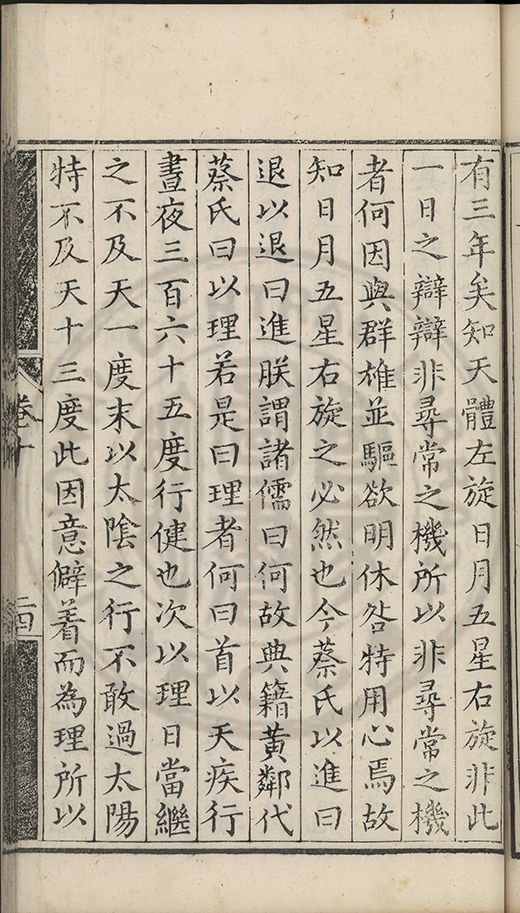 有三年矣知天體左旋日月五星右旋非此
一日之辯辯非尋常之機所以非尋常之機
者何因與群雄並驅欲明休咎特用心焉故
知日月五星右旋之必然也今蔡氏以進曰
退以退曰進朕謂諸儒曰何故典籍黃鄰代
蔡氏曰以理若是曰理者何曰首以天疾行
晝夜三百六十五度行健也次以理日當繼
之不及天一度末以太陰之行不敢過太陽
特不及天十三度此因意僻着而為理所以
卷十
二四